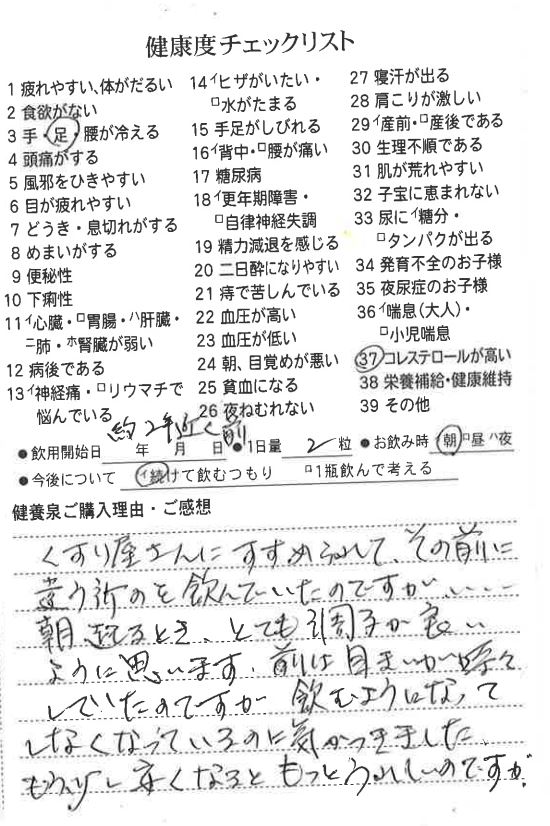 健康度チェックリスト
1 疲れやすい、体がだるい
2 食欲がない
3 手・足・腰が冷える
4 頭痛がする
5 風邪をひきやすい
6 目が疲れやすい
7 どうき・息切れがする
8 めまいがする
9 便秘性
10 下痢性
11イ心臓・ロ胃腸・ハ肝臓・
ニ肺・ホ腎臓が弱い
12 病後である
13イ神経痛・ロリウマチで
悩んでいる
14イヒザがいたい・
ロ水がたまる
15 手足がしびれる
16イ背中・ロ腰が痛い
17 糖尿病
18イ更年期障害・
ロ自律神経失調
19 精力減退を感じる
20 二日酔になりやすい
21 痔で苦しんでいる
22 血圧が高い
23 血圧が低い
24 朝、目覚めが悪い
25 貧血になる
26 夜ねむれない
27 寝汗が出る
28 肩こりが激しい
29イ産前・ロ産後である
30 生理不順である
31 肌が荒れやすい
32 子宝に恵まれない
33 尿にイ糖分・
ロタンパクが出る
34 発育不全のお子様
35 夜尿症のお子様
36イ喘息(大人)・
ロ小児喘息
37 コレステロールが高い
38 栄養補給・健康維持
39 その他
●飲用開始日 約2年近く前 年 月 日 ●1日量 2 粒 ●お飲み時 イ朝 ロ昼 ハ夜
●今後について イ続けて飲むつもり ロ1瓶飲んで考える
健養泉ご購入理由・ご感想
くすり屋さんにすすめられて、その前に
違う所のを飲んでいたのですが、、、、
朝、起るとき、とても調子が良い
ように思います。前は目まいが時々
していたのですが 飲むようになって
しなくなっているのに気がつきました。
もう少し安くなるともっとうれしいのですが。